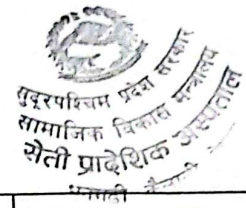 सुदूरपश्चिम प्रदेश सरकार
सामाजिक विकास मन्त्रालय
सेती प्रादेशिक अस्पताल
धनगढी कैलाली